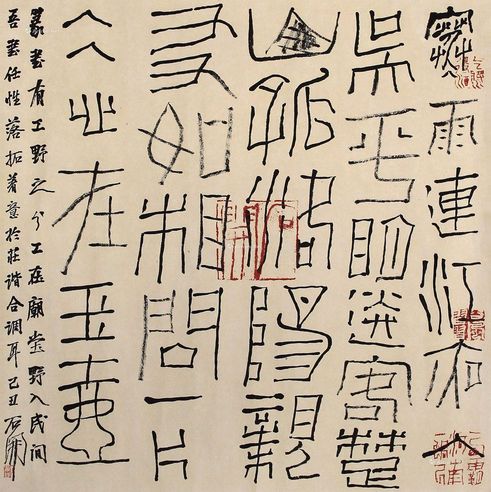 寒雨連江夜入
吳平明送客楚
山孤洛陽親
友如相問一片
冰心在玉壺
篆書有工野之分工在廟堂野入民間
吾書任性落拓著意於莊諧合調耳己丑石開